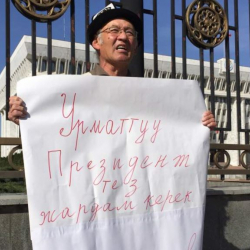 Урматтуу
Президент
тез
жардам керек